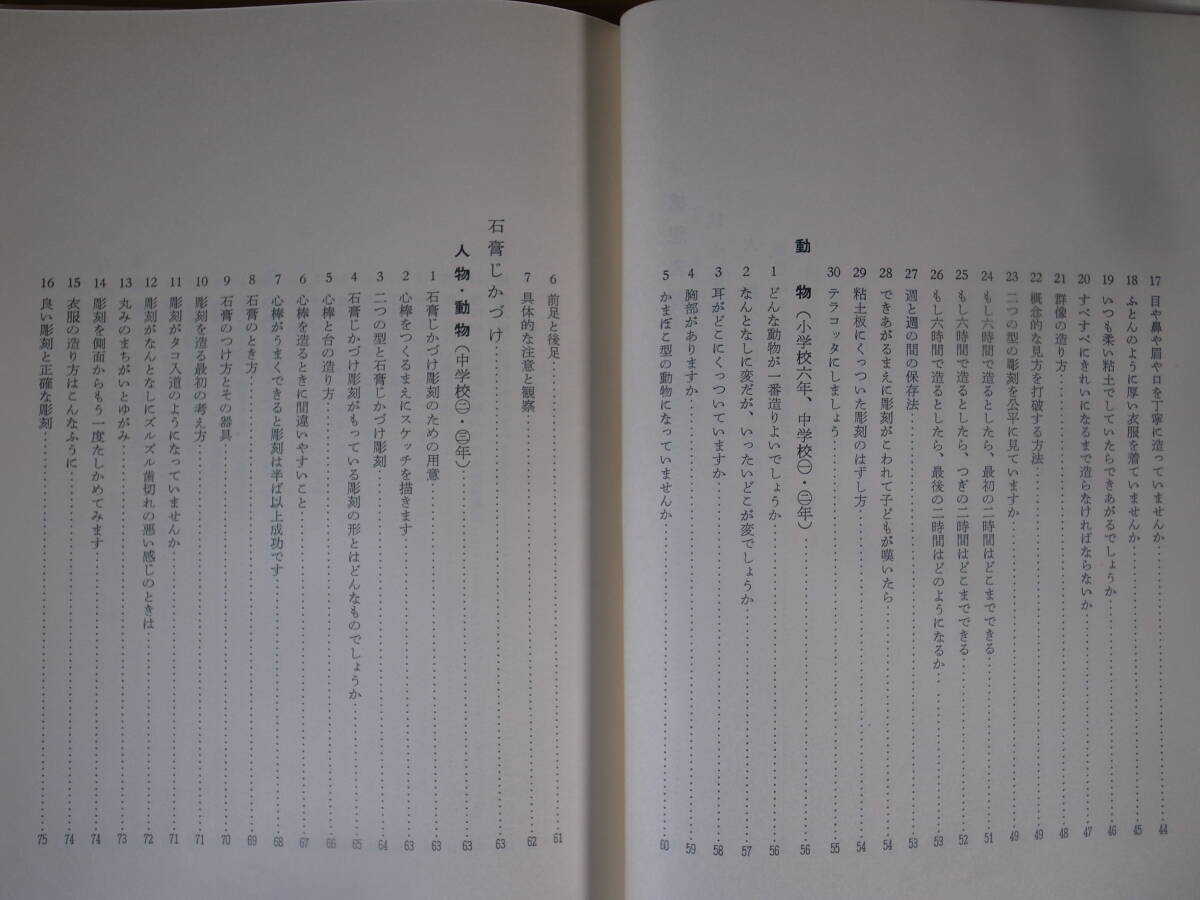 17 目や鼻や眉や口を丁寧に造っていませんか 44
18 ふとんのように厚い衣服を着ていませんか 45
19 いつも柔い粘土でしていたらできあがるでしょうか 46
20 すべすべにきれいになるまで造らなければならないか 47
21 群像の造り方 48
22 概念的な見方を打破する方法 49
23 二つの型の彫刻を公平に見ていますか 49
24 もし六時間で造るとしたら、最初の二時間はどこまでできる 51
25 もし六時間で造るとしたら、つぎの二時間はどこまでできる 52
26 もし六時間で造るとしたら、最後の二時間はどのようになるか 53
27 週と週の間の保存法 53
28 できあがるまえに彫刻がこわれて子どもが嘆いたら 54
29 粘土板にくっついた彫刻のはずし方 54
30 テラコッタにしましょう 55
動 物(小学校六年、中学校㊀・㊁年) 56
1 どんな動物が一番造りよいでしょうか 56
2 なんとなしに変だが、いったいどこが変でしょうか 57
3 耳がどこにくっついていますか 58
4 胸部がありますか 59
5 かまぼこ型の動物になっていませんか 60
6 前足と後足 61
7 具体的な注意と観察 62
石膏じかづけ 63
人物・動物(中学校㊁・㊂年) 63
1 石膏じかづけ彫刻のための用意 63
2 心棒をつくるまえにスケッチを描きます 63
3 二つの型と石膏じかづけ彫刻 64
4 石膏じかづけ彫刻がもっている彫刻の形とはどんなものでしょうか 65
5 心棒と台の造り方 66
6 心棒を造るときに間違いやすいこと 67
7 心棒がうまくできると彫刻は半ば以上成功です 68
8 石膏のとき方 69
9 石膏のつけ方とその器具 70
10 彫刻を造る最初の考え方 71
11 彫刻がタコ入道のようになっていませんか 71
12 彫刻がなんとなしにズルズル歯切れの悪い感じのときは 72
13 丸みのまちがいとゆがみ 73
14 彫刻を側面からもう一度たしかめてみます 74
15 衣服の造り方はこんなふうに 74
16 良い彫刻と正確な彫刻 75